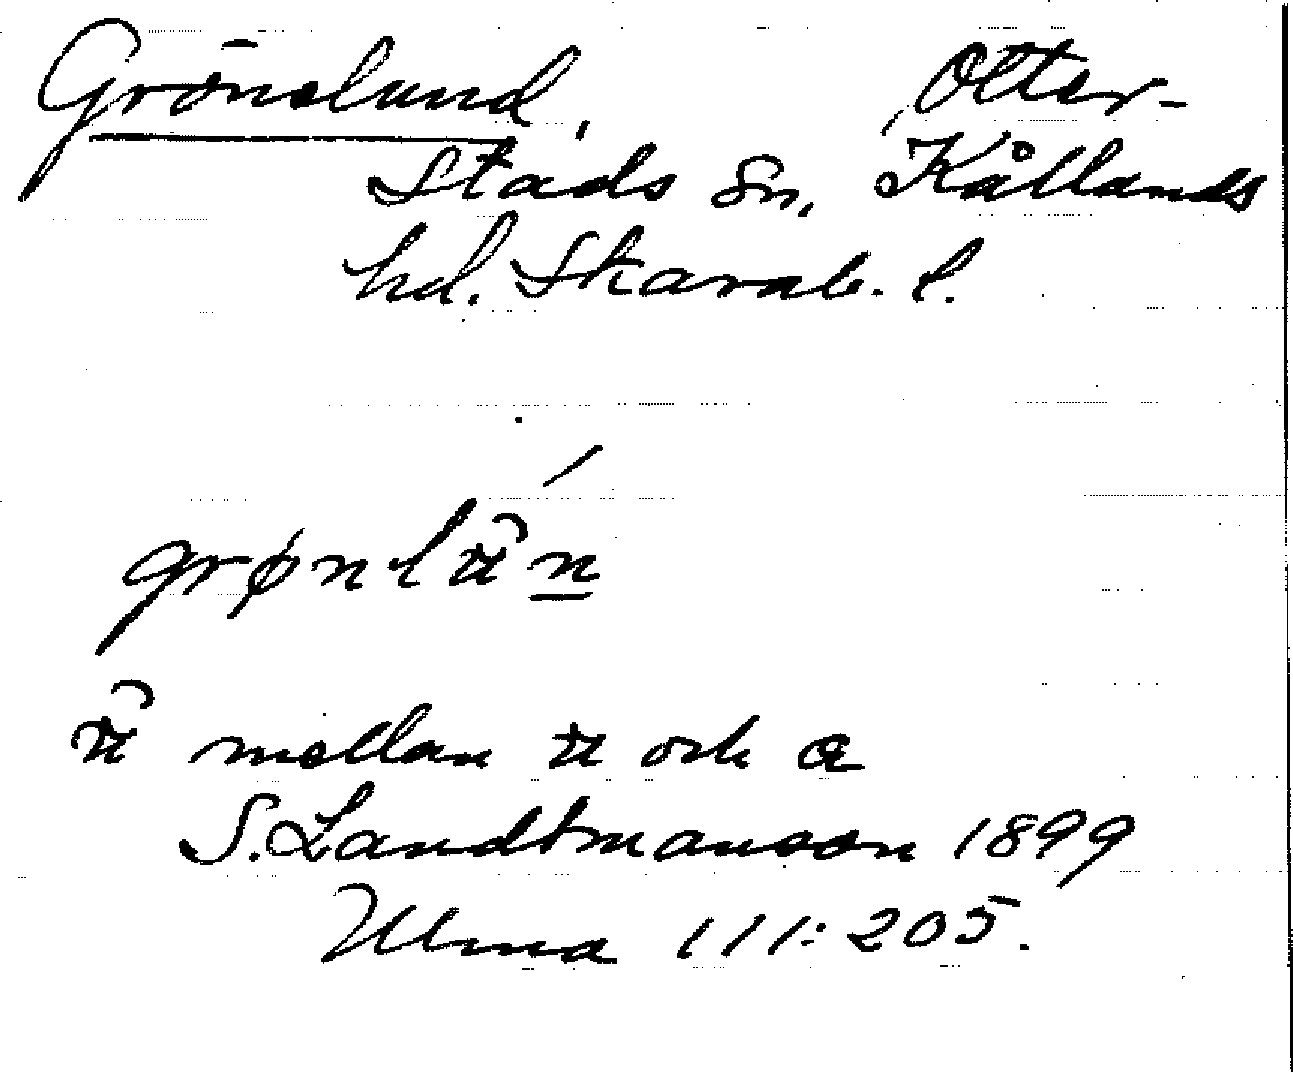 Grönslund, Otter-
stads sn, Kållands
hd. Skarab. l.
grønlu̇n
mellan u och a
S. Landtmanson 1899
Ulma 111:205.